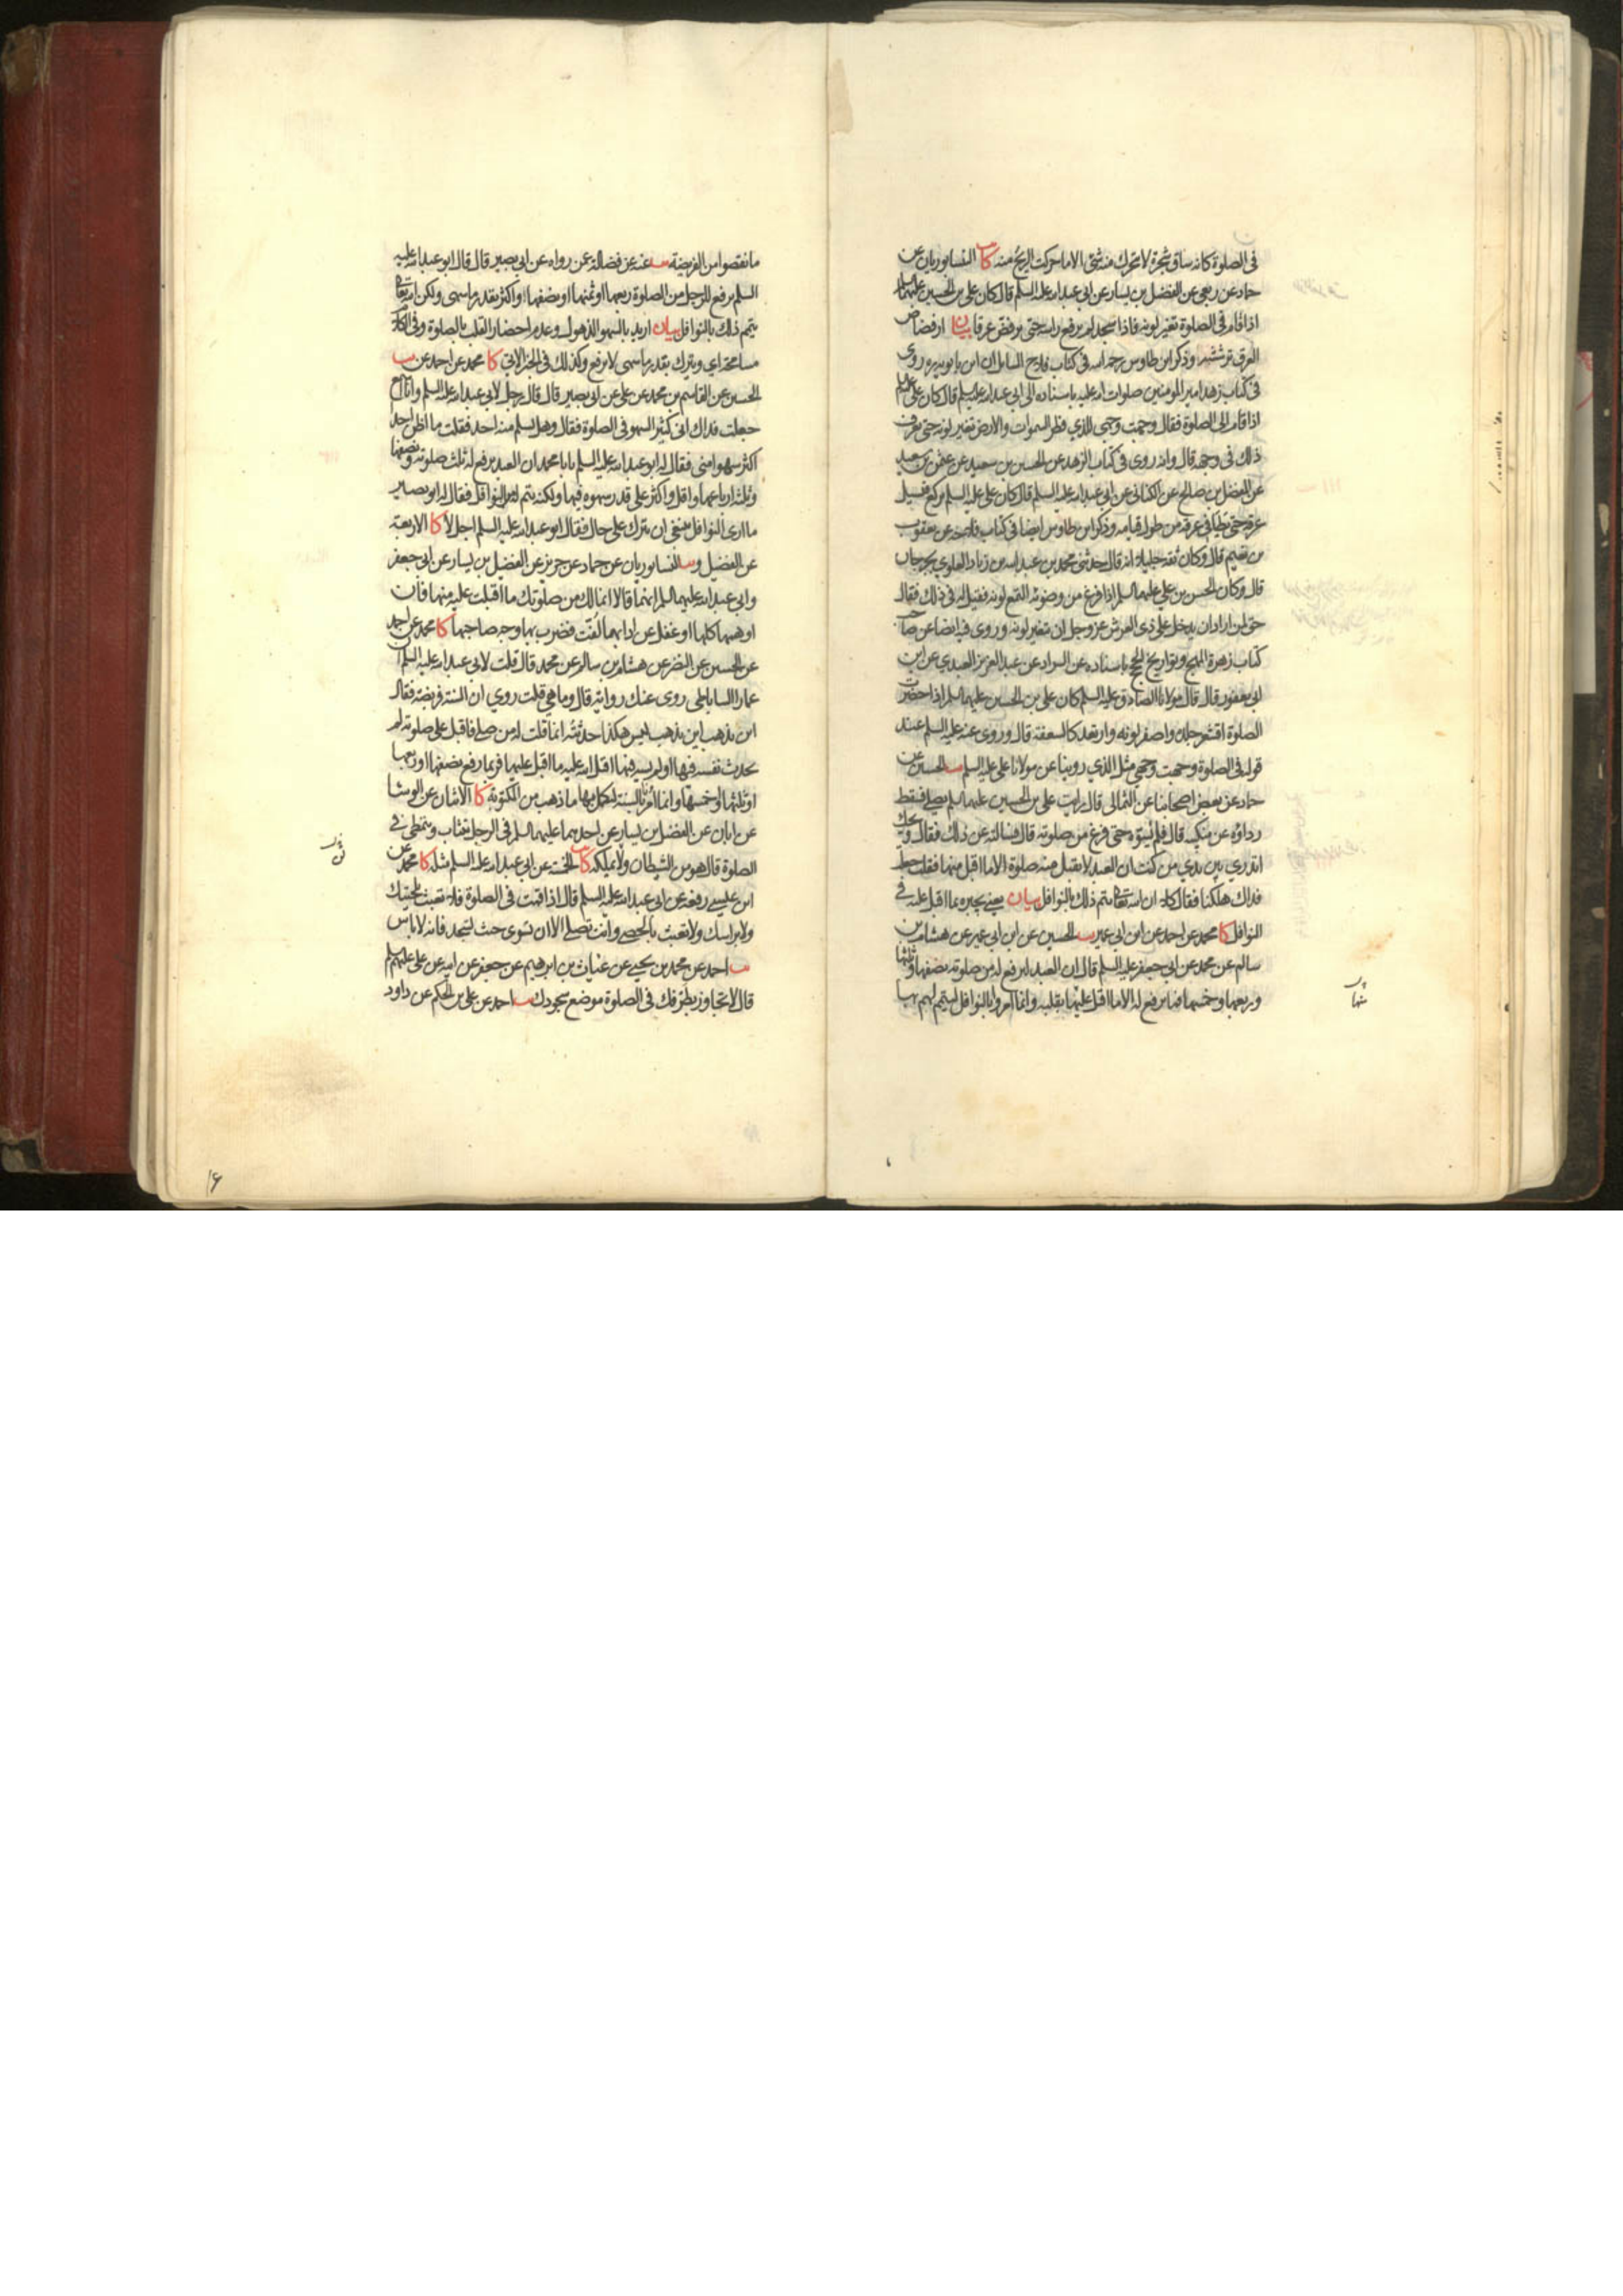 في الصلوة كانه ساق شجرة لا تتحرك منه شئ الا ما حركت الريح منه كا النيسابوريان عن
حماد عن ربعي عن الفضيل بن يسار عن ابي عبد الله عليه السلم قال كان علي بن الحسين عليهما السلم
اذا قام في الصلوة تغير لونه فاذا سجد لم يرفع راسه حتى يرفض عرقا بيان ارفضاض
العرق ترششه وذكر ابن طاوس رحمه الله في كتاب فلاح السايل ان ابن بابويه روى
في كتاب زهد امير المومنين صلوات الله عليه باسناده الى ابي عبد الله عليه السلم قال كان علي عليه السلم
اذا قام الى الصلوة فقال وجهت وجهي للذي فطر السموات والارض تغير لونه حتى يعرف
ذلك في وجهه قال وانه روى في كتاب الزهد عن الحسين بن سعيد عن عثمن بن سعيد
عن الفضل بن صالح عن الكناني عن ابي عبد الله عليه السلم قال كان علي عليه السلم يركع فيسيل
عرقه حتى يطأ في عرقه من طول قيامه وذكر ابن طاوس ايضا في كتاب فلاحه عن يعقوب
بن نعيم قال وكان ثقة جليلا انه قال حدثني محمد بن عبد الله بن زياد العلوي بجرجان
قال وكان الحسن بن علي عليهما السلم اذا فرغ من وضوئه التمع لونه فقيل له في ذلك فقال
حق لمن اراد ان يدخل على ذي العرش عز وجل ان يتغير لونه وروى فيه ايضا عن صاحب
كتاب زهرة المهج وتواريخ الحجج باسناده عن السراد عن عبد العزيز العبدي عن ابن
ابي يعفور قال قال مولانا الصادق عليه السلم كان علي بن الحسين عليهما السلم اذا حضرت
الصلوة اقشعر جلده واصفر لونه وارتعد كالسعفة قال وروى عنه عليه السلم عند
قوله في الصلوة وجهت وجهي مثل الذي روينا عن مولانا علي عليه السلم يب الحسين عن
حماد عن بعض اصحابنا عن الثمالي قال رايت علي بن الحسين عليهما السلم يصلي فسقط
رداؤه عن منكبه قال فلم يسوّه حتى فرغ من صلوته قال فسالته عن ذلك فقال ويحك
اتدري بين يدي من كنت ان العبد لا يقبل منه صلوة الا ما اقبل منها فقلت جعلت
فداك هلكنا فقال كلا ان الله تعالى يتم ذلك بالنوافل بيان يعني يجبره بما اقبل عليه في
النوافل كا محمد عن احمد عن ابن ابي عمير يب الحسين عن ابن ابي عمير عن هشام بن
سالم عن محمد عن ابي جعفر عليه السلم قال ان العبد ليرفع له من صلوته نصفها وثلثها
وربعها وخمسها فما يرفع له الا ما اقبل عليها بقلبه وانما امروا بالنوافل ليتم لهم بها
ما نقصوا من الفريضة يب عنه عن فضالة عن رواه عن ابي بصير قال قال ابو عبد الله عليه
السلم يرفع للرجل من الصلوة ربعها او ثمنها او نصفها او اكثر بقدر ما سهى ولكن الله تعالى
يتمم ذلك بالنوافل بيان اريد بالسهو الذهول وعدم احضار القلب بالصلوة وفي الكلام
مسامحة اي ويترك بقدر ما سهى لا يرفع وكذلك في الخبر الاتي كا محمد عن احمد عن يب
الحسين عن القاسم بن محمد عن علي عن ابي بصير قال قال رجل لابي عبد الله عليه السلم وانا اسمع
جعلت فداك اني كثير السهو في الصلوة فقال وهل يسلم منه احد فقلت ما اظن احدا
اكثر سهوا مني فقال له ابو عبد الله عليه السلم يا با محمد ان العبد يرفع له ثلث صلوته ونصفها
وثلثة ارباعها واقل واكثر على قدر سهوه فيها ولكنه يتم له من النوافل فقال له ابو بصير
ما ارى النوافل ينبغي ان يترك على حال فقال ابو عبد الله عليه السلم اجل لا كا الاربعة
عن الفضيل و يب النيسابوريان عن حماد عن حريز عن الفضيل بن يسار عن ابي جعفر
وابي عبد الله عليهما السلم انهما قالا انما لك من صلوتك ما اقبلت عليه منها فان
اوهمها كلها او غفل عن ادابها لفت فضرب بها وجه صاحبها كا محمد عن احمد
عن الحسين عن النضر عن هشام بن سالم عن محمد قال قلت لابي عبد الله عليه السلم ان
عمار الساباطي روى عنك رواية قال وما هي قلت روي ان السنة فريضة فقال
اين يذهب اين يذهب ليس هكذا حدثته انما قلت له من صلى فاقبل على صلوته لم
يحدث نفسه فيها او لم يسه فيها اقبل الله عليه ما اقبل عليها فربما رفع نصفها او ربعها
او ثلثها او خمسها وانما امر بالسنة ليكمل بها ما ذهب من المكتوبة كا الاثنان عن الوشا
عن ابان عن الفضيل بن يسار عن احدهما عليهما السلم في الرجل يتثاب ويتمطى في
الصلوة قال هو من الشيطان ولا يملكه كا الخمسة عن ابي عبد الله عليه السلم مثله كا محمد عن
ابن عيسى رفعه عن ابي عبد الله عليه السلم قال اذا قمت في الصلوة فلا تعبث بلحيتك
ولا براسك ولا تعبث بالحصى وانت تصلي الا ان تسوي حيث تسجد فانه لا باس
يب احمد عن محمد بن يحيى عن غياث بن ابرهيم عن جعفر عن ابيه عن علي عليهم السلم
قال لا تجاوز بطرفك في الصلوة موضع سجودك يب احمد عن علي بن الحكم عن داود